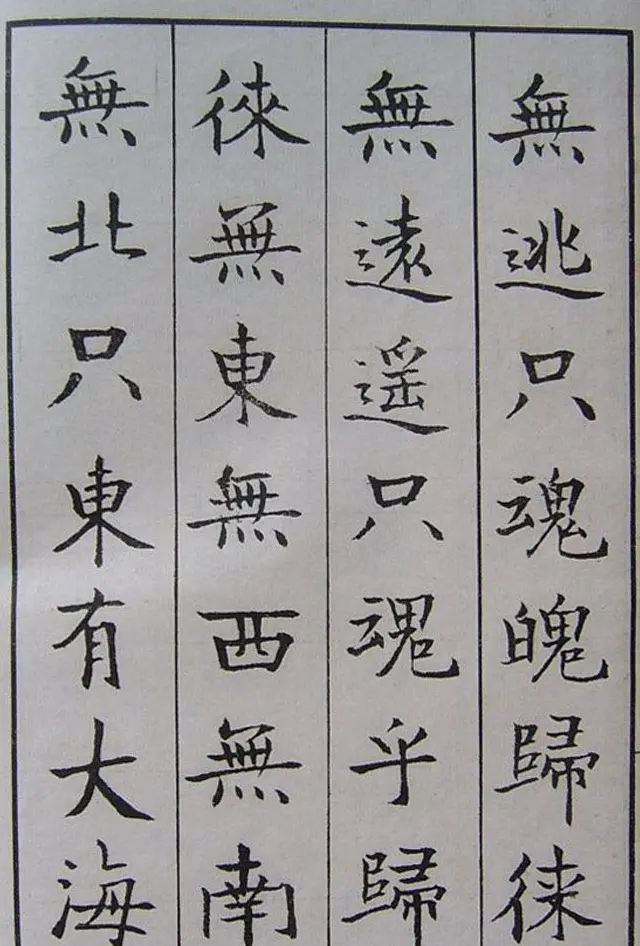 無逃只魂魄歸徠
無遠遥只魂乎歸
徠無東無西無南
無北只東有大海